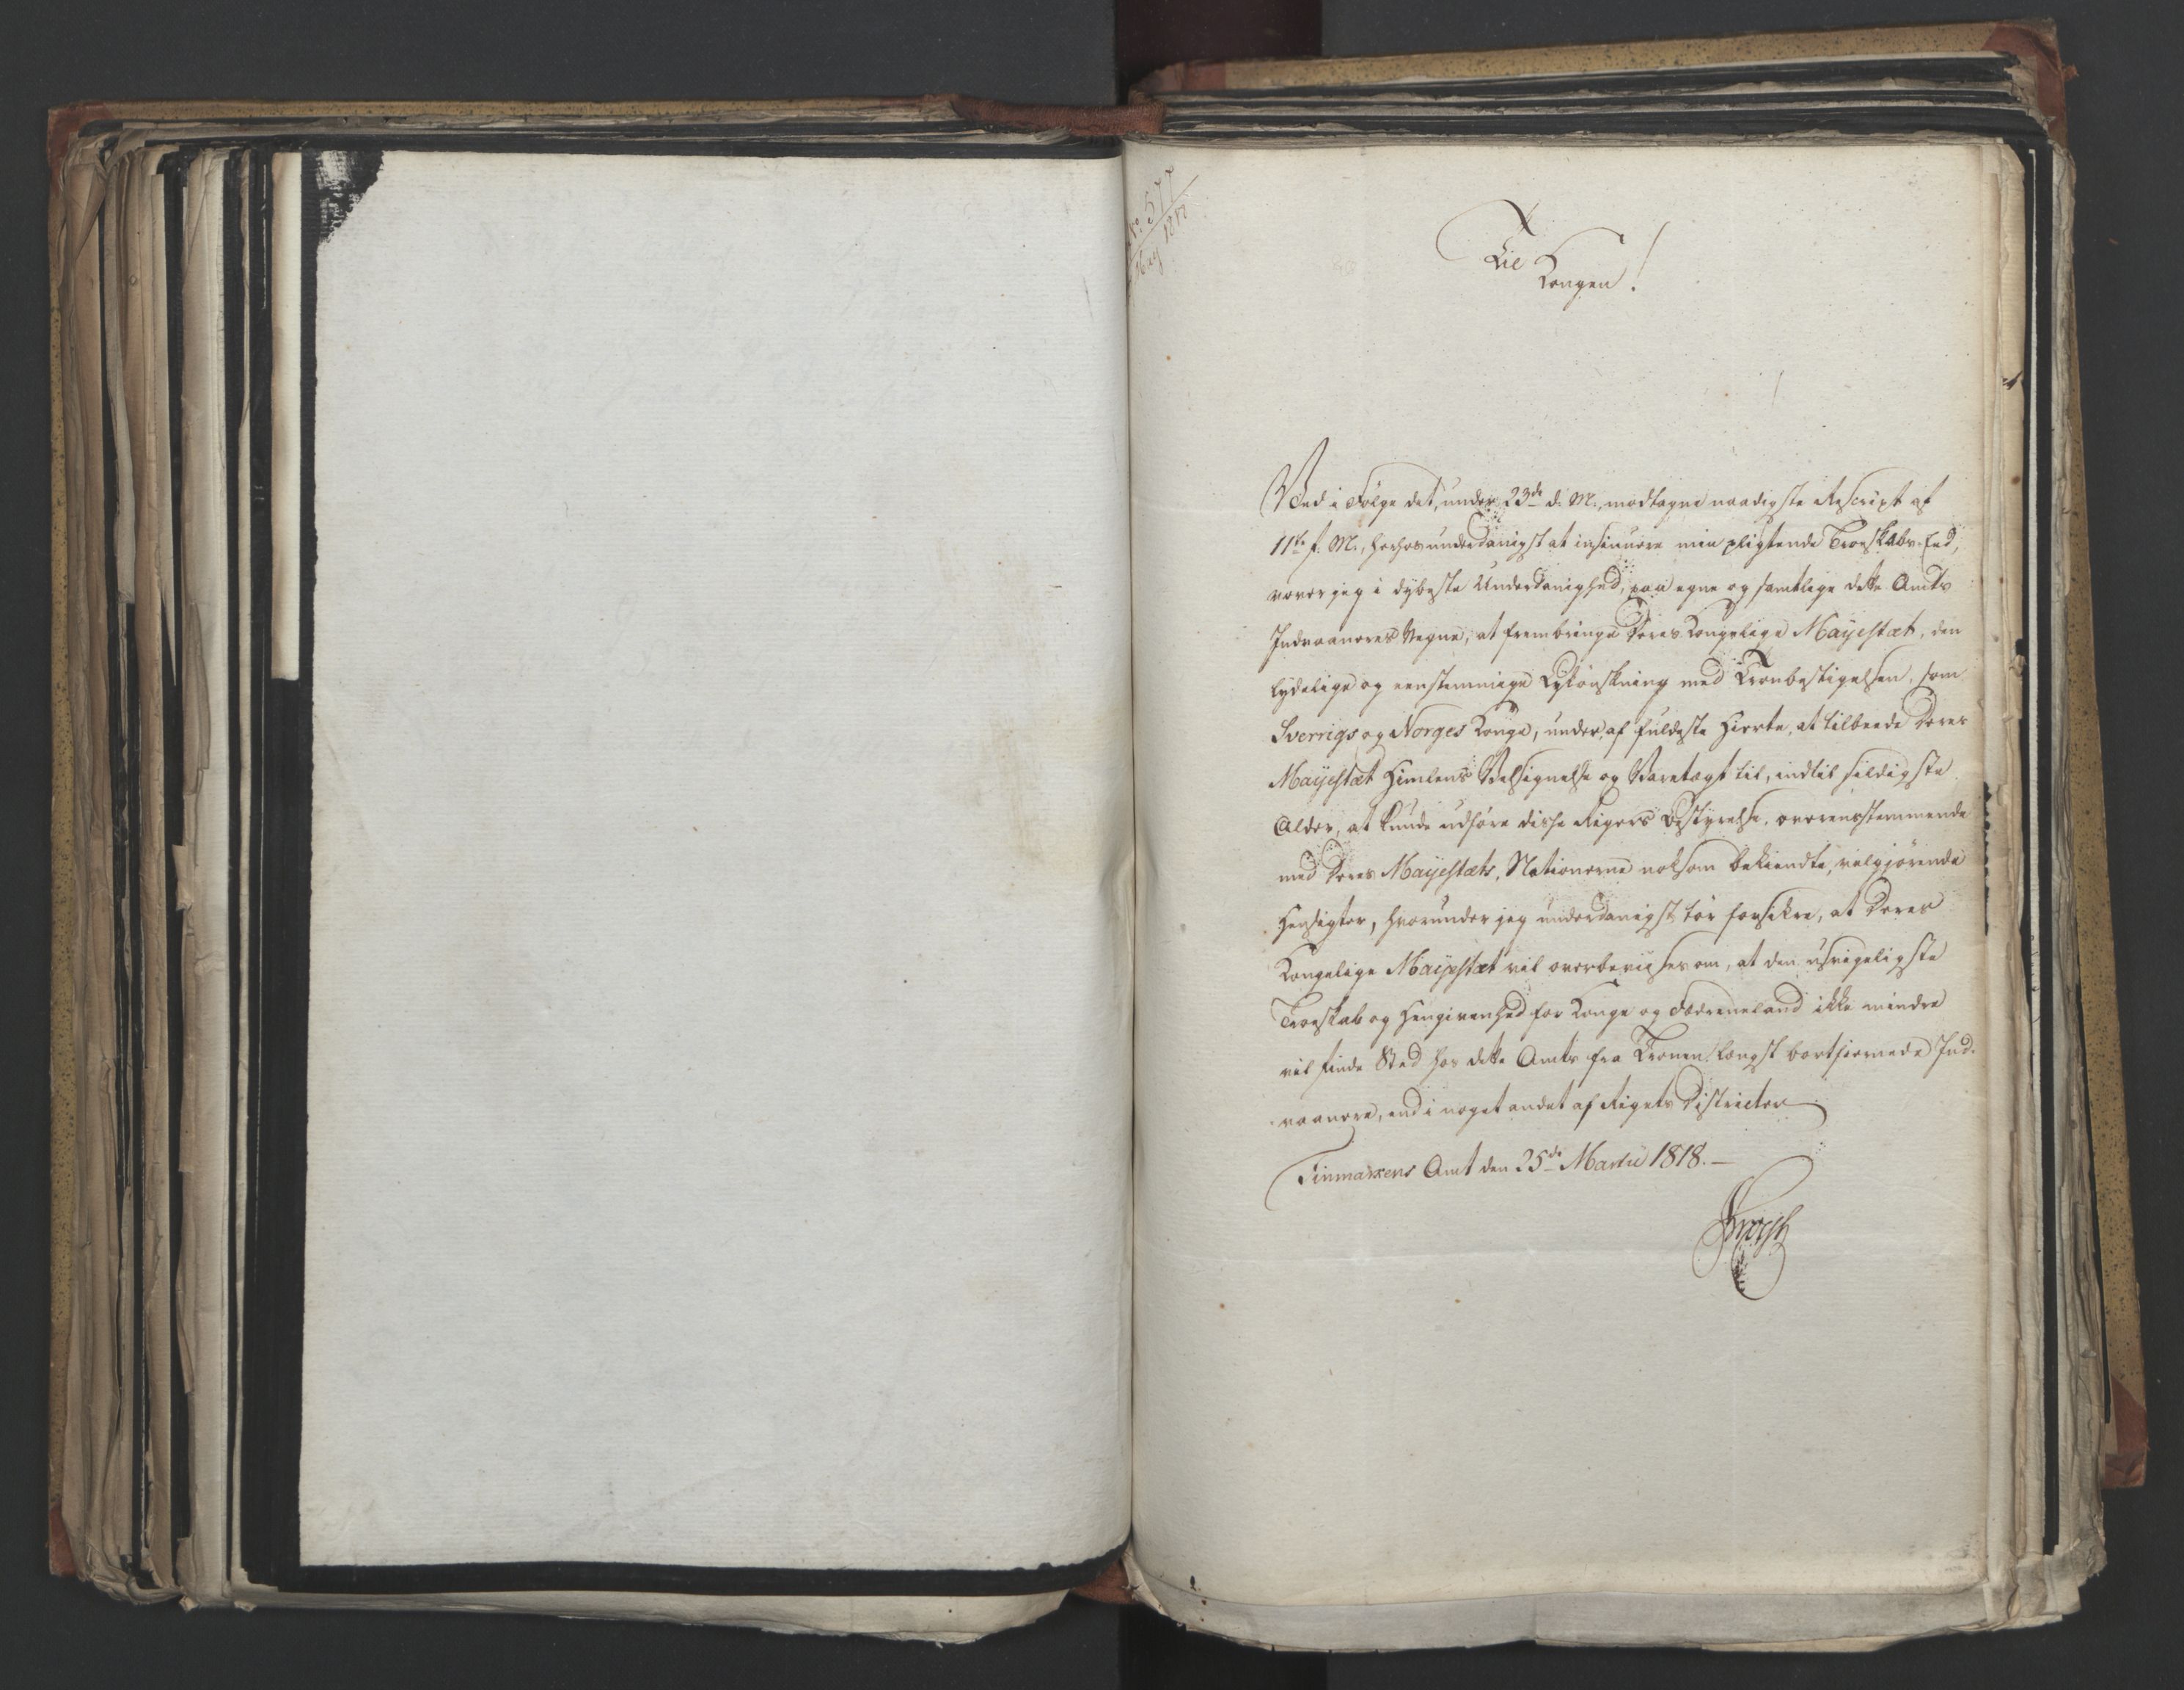 No 577
May 1818
Til
Kongen!
Ved i Følge det, under 23de d. M., modtagne naadigste Rescript af
11te f. M., herhos underdanigst at insinuere min pligtende Troskabs-Eed,
vover jeg i dybeste Underdanighed, paa egne og samtlige dette Amts
Indvaaneres Vegne, at frembringe Deres Kongelige Mayestæt, den
lydelige og eenstemmige Lykønskning med Tronbestigelsen, som
Sverrigs og Norges Konge, under, af fuldeste Hierte, at tilbeede Deres
Mayestæt Himlens Velsignelse og Varetægt til, indtil sildigste
Alder, at kunde udføre disse Rigers Bestyrelse, overensstemmende
med Deres Mayestæts, Nationerne noksom bekiendte, velgjørende
Hensigter, hvorunder jeg underdanigst tør forsikre, at Deres
Kongelige Mayestæt vil overbeviises om, at den usvigeligste
Troskab og Hengivenhed for Konge og Fædreneland ikke mindre
vil finde Sted hos dette Amts fra Tronen længst bortfiernede Ind-
vaanere, end i noget andet af Rigets Districter
Finmarkens Amt den 25de Martii 1818. —
Krogh